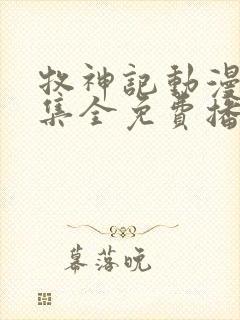 牧神記動漫
集全免費播
幕落晚